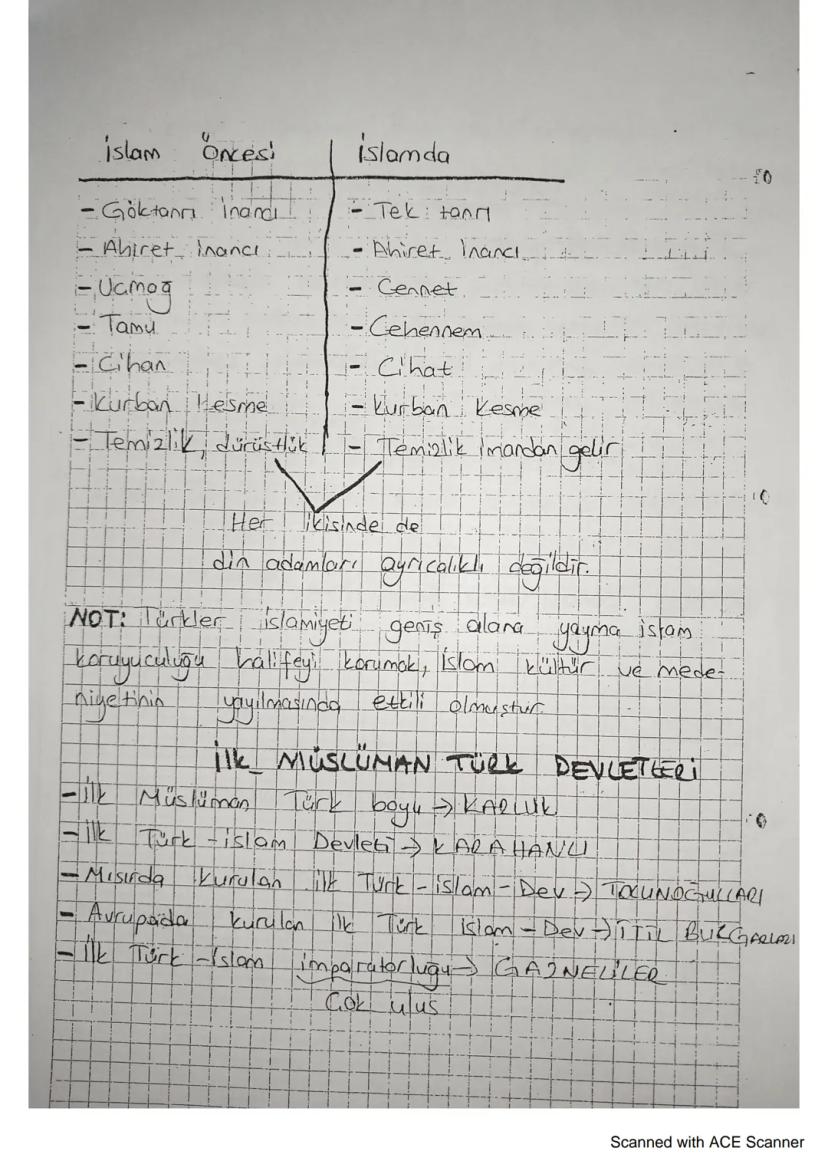 İslam Öncesi | İslamda
- Göktanrı inancı - Tek tanrı
- Ahiret inancı - Ahiret İnancı
- Ucmag - Cennet
- Tamu - Cehennem
- Cihan - Cihat
- Kurban Kesme - Kurban Kesme
- Temizlik, dürüstlük - Temizlik imandan gelir
Her ikisinde de
din adamları ayrıcalıklı değildir.
NOT: Türkler islamiyeti geniş alana yayma islam
koruyuculuğu halifeyi korumak, İslam kültür ve mede-
niyetinin yayılmasında etkili olmuştur.
İlk MÜSLÜMAN TÜRK DEVLETLERİ
- İlk Müslüman Türk boyu → KARLUK
- İlk Türk-islam Devleti → KARAHANLI
- Mısırda kurulan ilk Türk-islam-Dev → TOLUNOĞULLARI
- Avrupada kurulan ilk Türk islam-Dev → İTİL BULGARLARI
- İlk Türk-İslam imparatorluğu → GAZNELİLER
Çok ulus
Scanned with ACE Scanner